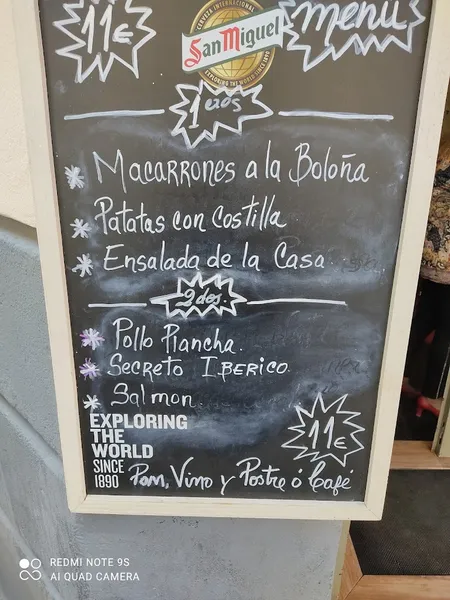 11€
CERVEZA INTERNACIONAL
San Miguel
EXPLORING THE WORLD SINCE 1890
menú
1eros
* Macarrones a la Boloña
* Patatas con Costilla
* Ensalada de la Casa
2dos.
* Pollo Plancha.
* Secreto Iberico.
* Salmon.
EXPLORING
THE
WORLD
SINCE
1890
11€
Pam, Vino y Postre ó Café
REDMI NOTE 9S
AI QUAD CAMERA